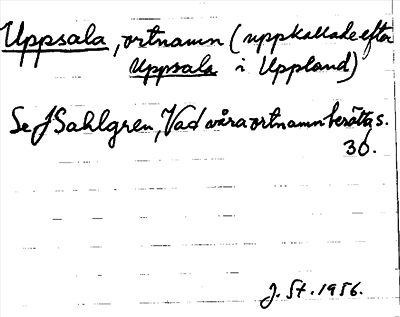 Uppsala, ortnamn (uppkallade efter
Uppsala i Uppland)
Se J Sahlgren, Vad våra ortnamn berätta, s.
36.
J. St. 1956.